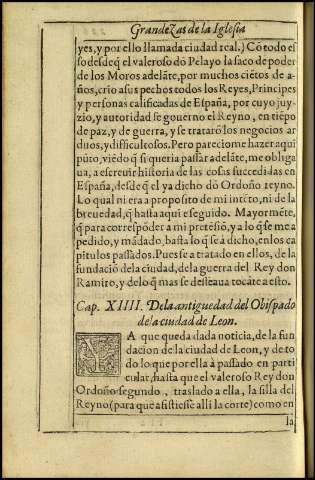 Grandezas de la Iglesia
yes, y por ello llamada ciudad real.) Cō todo es
so desde q̃ el valeroso dō Pelayo la saco de poder
de los Moros adelāte, por muchos ciētos de a-
ños, crio a sus pechos todos los Reyes, Principes
y personas calificadas de España, por cuyo juy-
zio, y autoridad se governo el Reyno, en tiēpo
de paz, y de guerra, y se tratarō los negocios ar
duos, y difficultosos. Pero pareciome hazer aqui
pūto, viēdo q̃ si queria passar adelāte, me obliga
ua, a escreuir historia de las cosas succedidas en
España, desde q̃ el ya dicho dō Ordoño reyno.
Lo qual ni era a proposito de mi intēto, ni de la
breuedad, q̃ hasta aqui e seguido. Mayormēte,
q̃ para correspōder a mi pretēsiō, y a lo q̃ se me a
pedido, y mādado, basta lo q̃ se a dicho, en los ca
pitulos passados. Pues se a tratado en ellos, de la
fundaciō de la ciudad, de la guerra del Rey don
Ramiro, y de lo q̃ mas se desseaua tocāte a esto.
Cap. XIIII. De la antiguedad del Obispado
de la ciudad de Leon.
YA que queda dada noticia, de la fun
dacion de la ciudad de Leon, y de to
do lo que por ella à passado en parti
cular, hasta que el valeroso Rey don
Ordoño segundo, traslado a ella, la silla del
Reyno (para que assistiesse alli la corte) como en
la